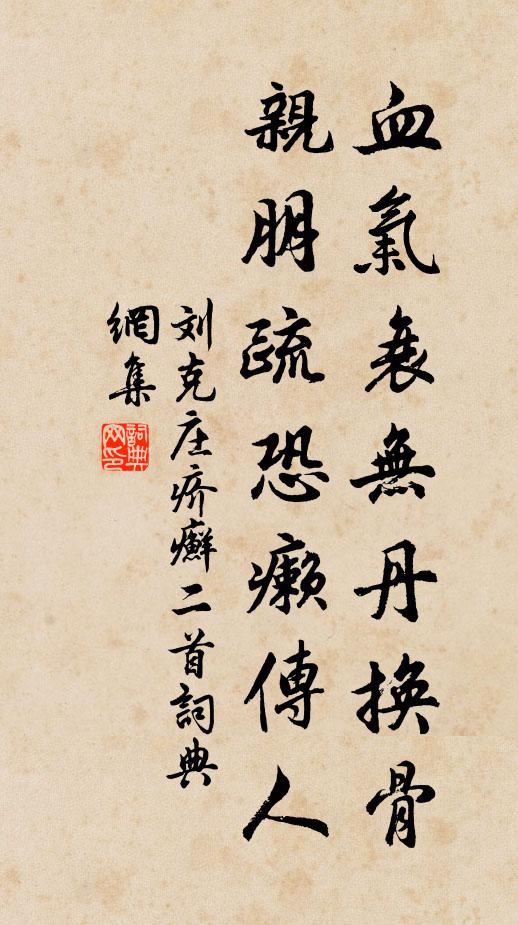 血氣衰無丹換骨
親朋疏恐癩傳人
刘克庄疥癬二首詞典
網集
詞典网印